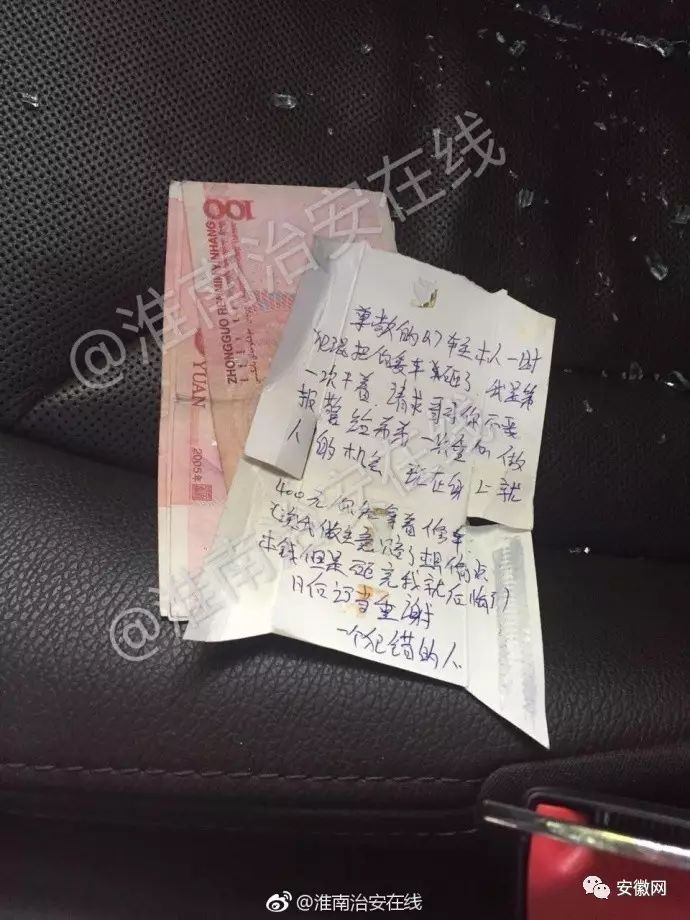 @淮南治安在线
100
ZHONGGUO RENMIN YINHANG
YUAN
2005年
尊敬的Q7车主本人一时
犯混把你爱车砸了.我是第
一次干着.请求哥哥你不要
报警给弟弟一次重新做
人的机会 现在身上就
400元你先拿着修车
我做生意赔了想偷点
本钱但是砸完我就后悔了)
日后订当重谢
一个犯错的人
@淮南治安在线
@淮南治安在线
安徽网